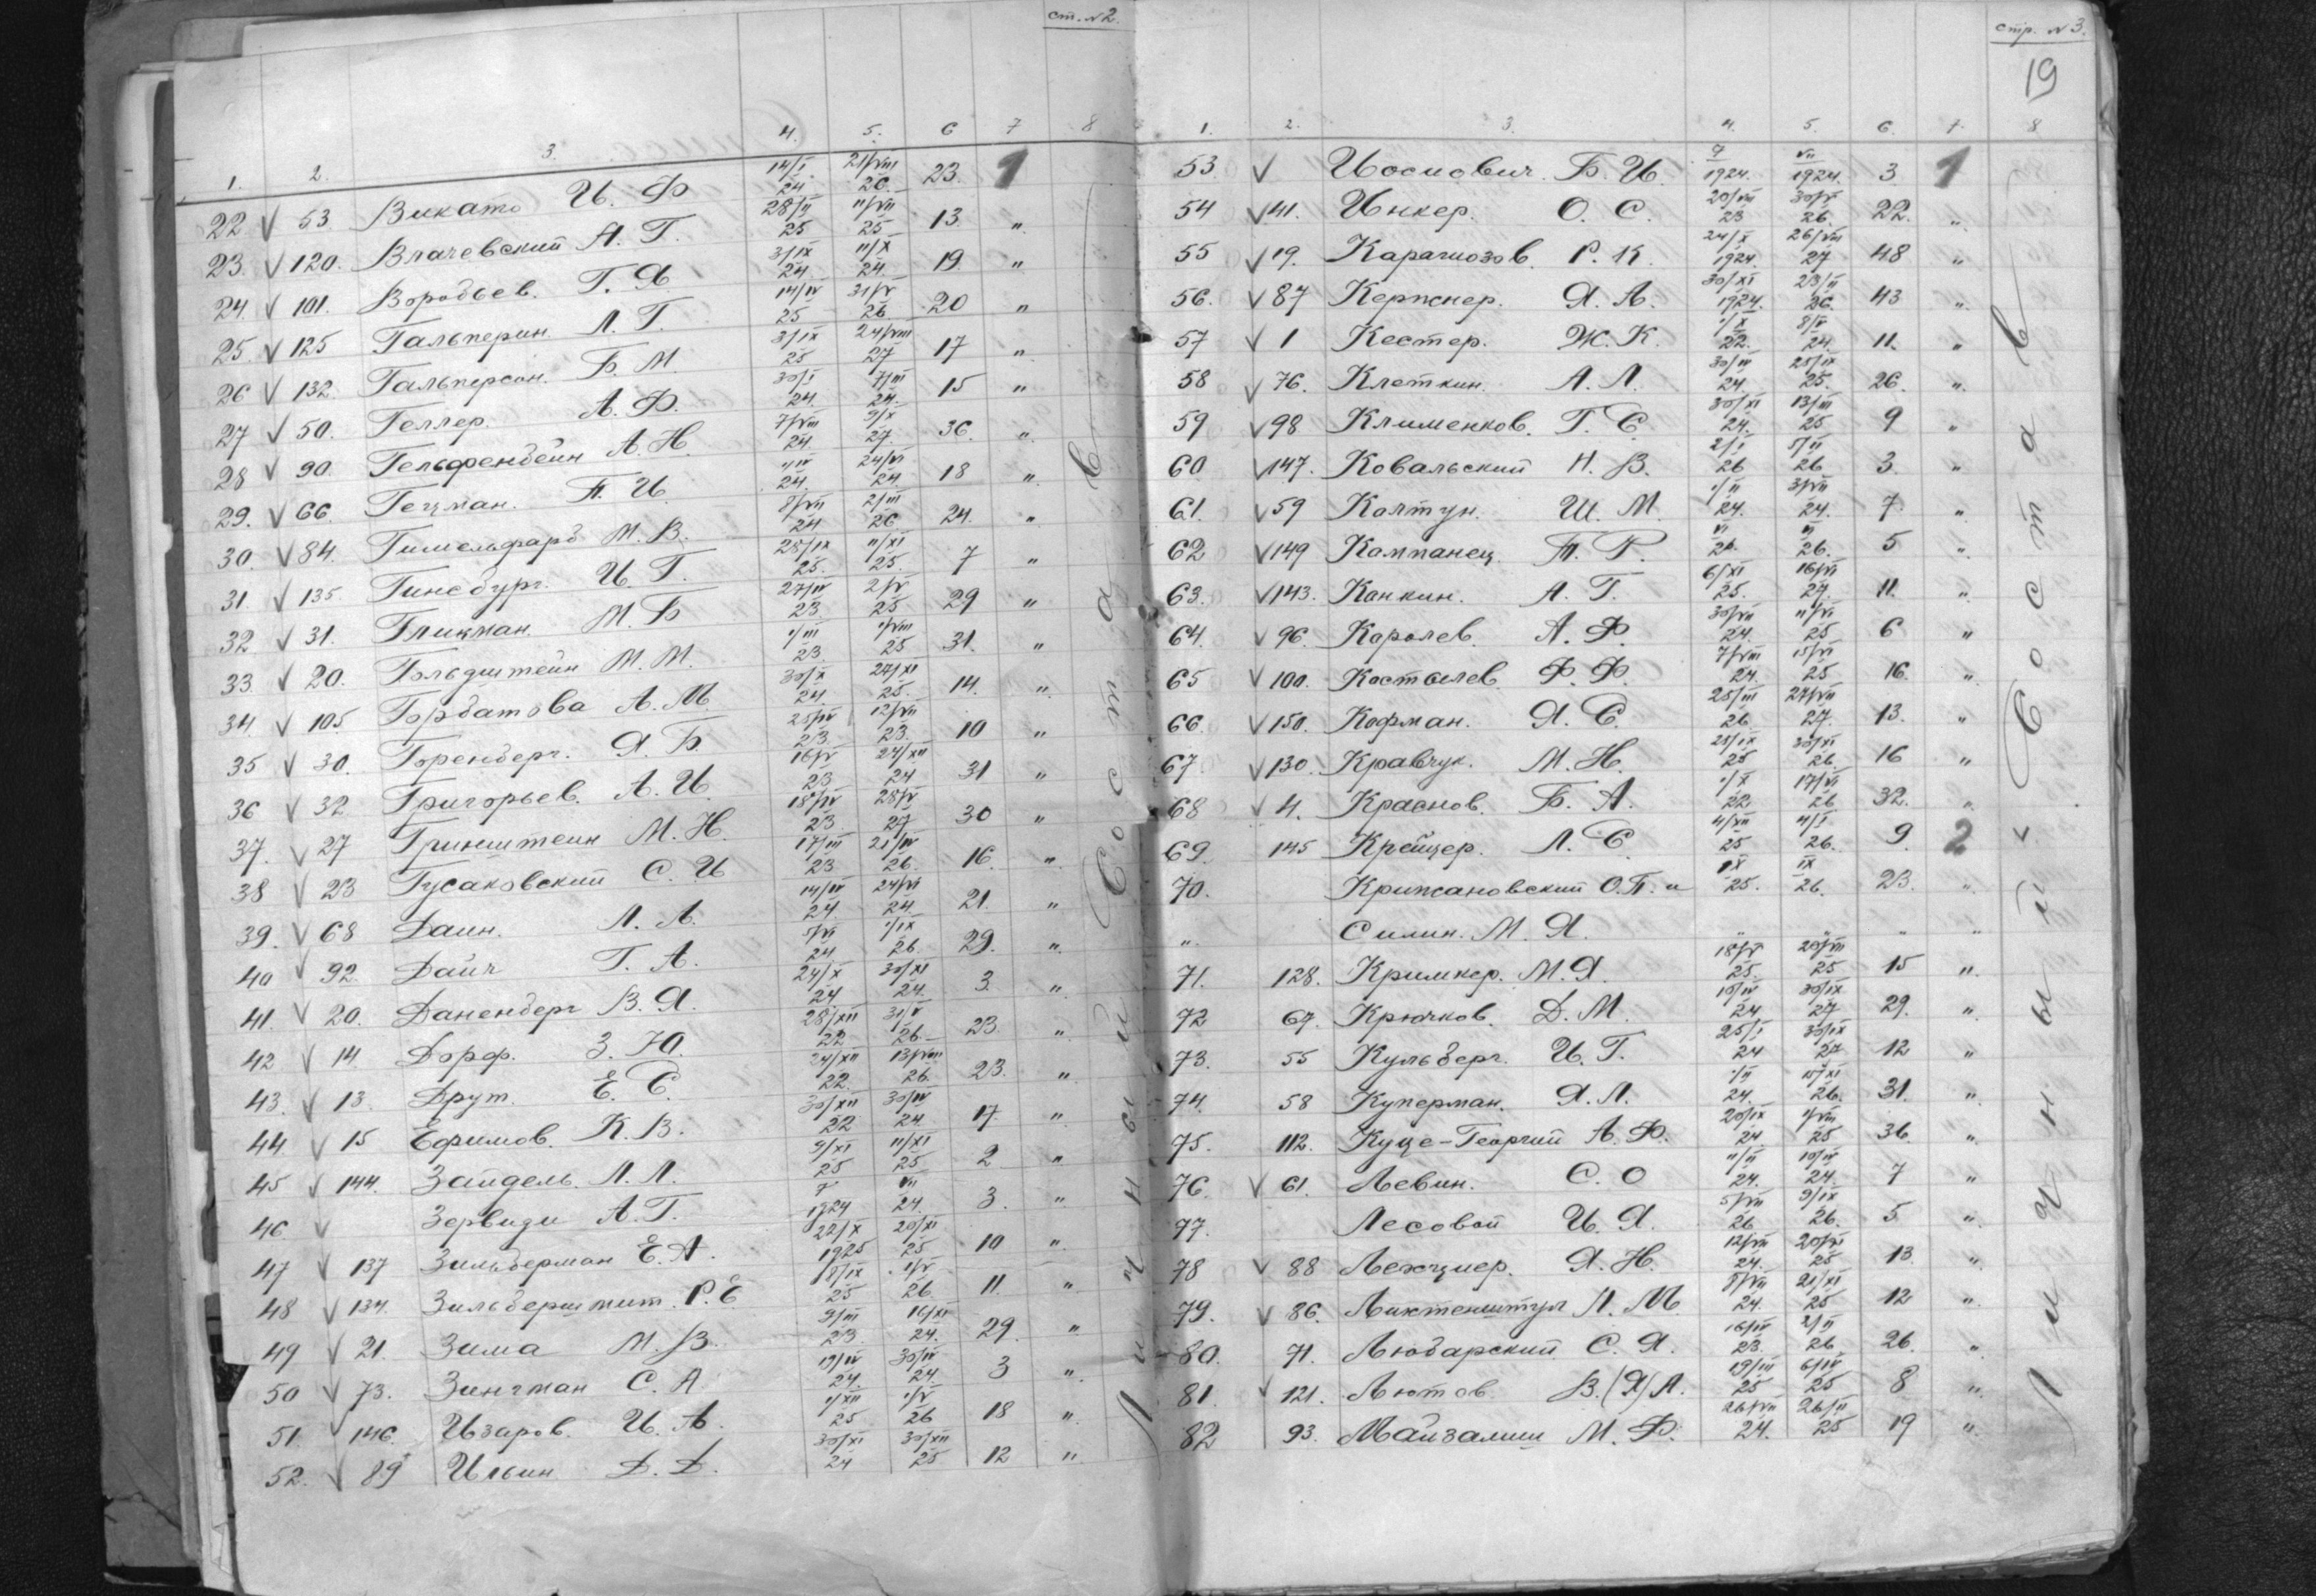 ст. № 2.
1. 2. 3. 4. 5. 6 7 8
22 V 53 Викато И. Ф 14/I 24 21/VIII 26. 23. 1
23. V 120. Влачевский А. Г. 28/II 25 11/VII 25 13. "
24. V 101. Воробьев. Г. Я 3/IX 24. 11/X 24. 19 "
25. V 125 Гальперин. Л. Г. 14/IV 25 31/V 26. 20 "
26 V 132. Гальперсон. Б. М. 8/IX 25 24/VIII 27 17 "
27 V 50. Геллер. А. Ф. 30/I 24. 7/III 24. 15 "
28 V 90. Гельфенбейн А. Н. 7/VIII 24. 9/X 27. 36. "
29. V 66. Гецман. П. И. 1/IV 24. 24/VI 24 18 "
30. V 84. Гимельфарб М. В. 8/VII 24 2/III 26 24. "
31. V 135. Гинсбург. И. Г. 28/IX 25. 11/XI 25. 7 "
32. V 31. Гликман. М. Б 27/IV 23 2/V 25 29 "
33. V 20. Гольдштейн М. М. 1/III 23 1/VIII 25 31. "
34. V 105 Горбатова А. М 30/X 24. 27/XI 25. 14. "
35 V 30. Горенберг. Я. Б. 25/IV 23. 12/VII 23. 10 "
36 V 32 Григорьев. А. И 16/V 23 24/XII 24 31 "
37. V 27 Гринштейн М. Н. 18/IV 23. 28/V 27 30 "
38 V 23 Гусаковский С. И 17/III 23 21/IV 26. 16. "
39. V 68 Даин. Л. А. 14/IV 24 24/VI 24 21. "
40 V 92. Дайч Г. А. 5/VI 24 1/IX 26. 29. "
41. V 20. Даненберг В. Я. 24/X 24. 30/XI 24. 3. "
42 V 14. Дорф. З. Ю. 28/XII 22 31/V 26. 23. "
43. V 13. Друт. Е. С. 24/XII 22. 13/VIII 26. 23. "
44. V 15 Ефимов. К. В. 30/XII 22 30/IV 24 17. "
45 V 144. Зайдель. Л. Л. 9/XI 25 11/XI 25. 2 "
46 V Зервиди А. Г. V 1924 VII 24. 3. "
47 V 137 Зильберман Е. А. 22/X 1925 20/XI 25 10 "
48 V 134. Зильбершмит. Р. Е 8/IX 25 1/V 26 11. "
49 V 21. Зима М. В. 9/III 23. 16/XI 24. 29. "
50 V 73. Зингман С. А. 19/IV 24. 30/IV 24. 3 "
51. V 146. Изаров. И. А. 1/XII 25 1/V 26 18 "
52. V 89 Ильин Д. Д. 30/XI 24 30/XII 25 12 "
Личный Состав
стр. № 3.
19
1. 2. 3. 4. 5. 6. 7. 8
53 V Иосиович. Б. И. V 1924. VII 1924. 3 1
54 V 41. Инкер. О. С. 20/VIII 23 30/V 26. 22. "
55 V 19. Карагиозов. Р. К. 24/X 1924. 26/VIII 27 48 "
56. V 87 Кержнер. Я. А. 30/XI 1924. 23/II 26. 43 "
57 V 1 Кестер. Ж. К. 1/X 22. 8/V 24. 11. "
58 V 76. Клеткин. А. Л. 30/IV 24. 25/IX 25. 26. "
59 V 98 Клименков. Г. Е. 30/XI 24. 13/III 25 9 "
60. V 147. Ковальский Н. В. 2/I 26 5/II 26 3. "
61. V 59 Колтун. Ш. М. 1/II 24. 3/VII 24. 7. "
62 V 149 Компанец. П. Р. VI 26. VI 26. 5 "
63. V 143. Конкин. А. Г. 6/XI 25. 16/VI 27. 11. "
64. V 96. Королев. А. Ф. 30/VII 24. 11/VI 25 6 "
65 V 100. Костылев. Ф. Ф. 7/VIII 24. 15/VI 25 16. "
66. V 150. Кофман. Я. С. 25/III 26. 27/VII 27. 13. "
67. V 130. Кравчук. М. Н. 28/IX 25 30/XI 26. 16 "
68 V 4. Краснов. Б. А. 1/X 22. 17/VI 26 32. "
69. 145 Крейцер. Л. С. 4/XII 25 4/I 26. 9. 2
70. Крижановский О. П. и IX 25. IX 26. 23. "
" Силин. М. Я. " " " "
71. 128. Кримкер. М. Я. 18/V 25. 20/VII 25 15 "
72 67. Крючков. Д. М. 10/IV 24 30/IX 27 29. "
73. 55 Кульберг. И. Г. 25/I 24 30/IX 27 12 "
74. 58 Куперман. Я. Л. 1/II 24. 15/XI 26. 31. "
75. 112. Куце-Георгий А. Ф. 20/IX 24 1/VIII 25 36. "
76. V 61. Левин. С. О 11/II 24. 10/IV 24. 7 "
77. Лесовой И. Я. 5/VII 26 9/IX 26. 5 "
78 V 88 Лехциер. Я. Н. 12/VII 24. 20/XI 25 13 "
79. V 86. Ликтенштул Л. М 8/VII 24. 21/XI 25 12 "
80. 71. Любарский С. Я. 16/IV 23. 2/II 26 26. "
81. V 121. Лютов В. (Я) Л. 19/III 25 6/IV 25 8 "
82 93. Майзалиш М. Ф. 26/VII 24. 26/II 25 19 "
Личный Состав